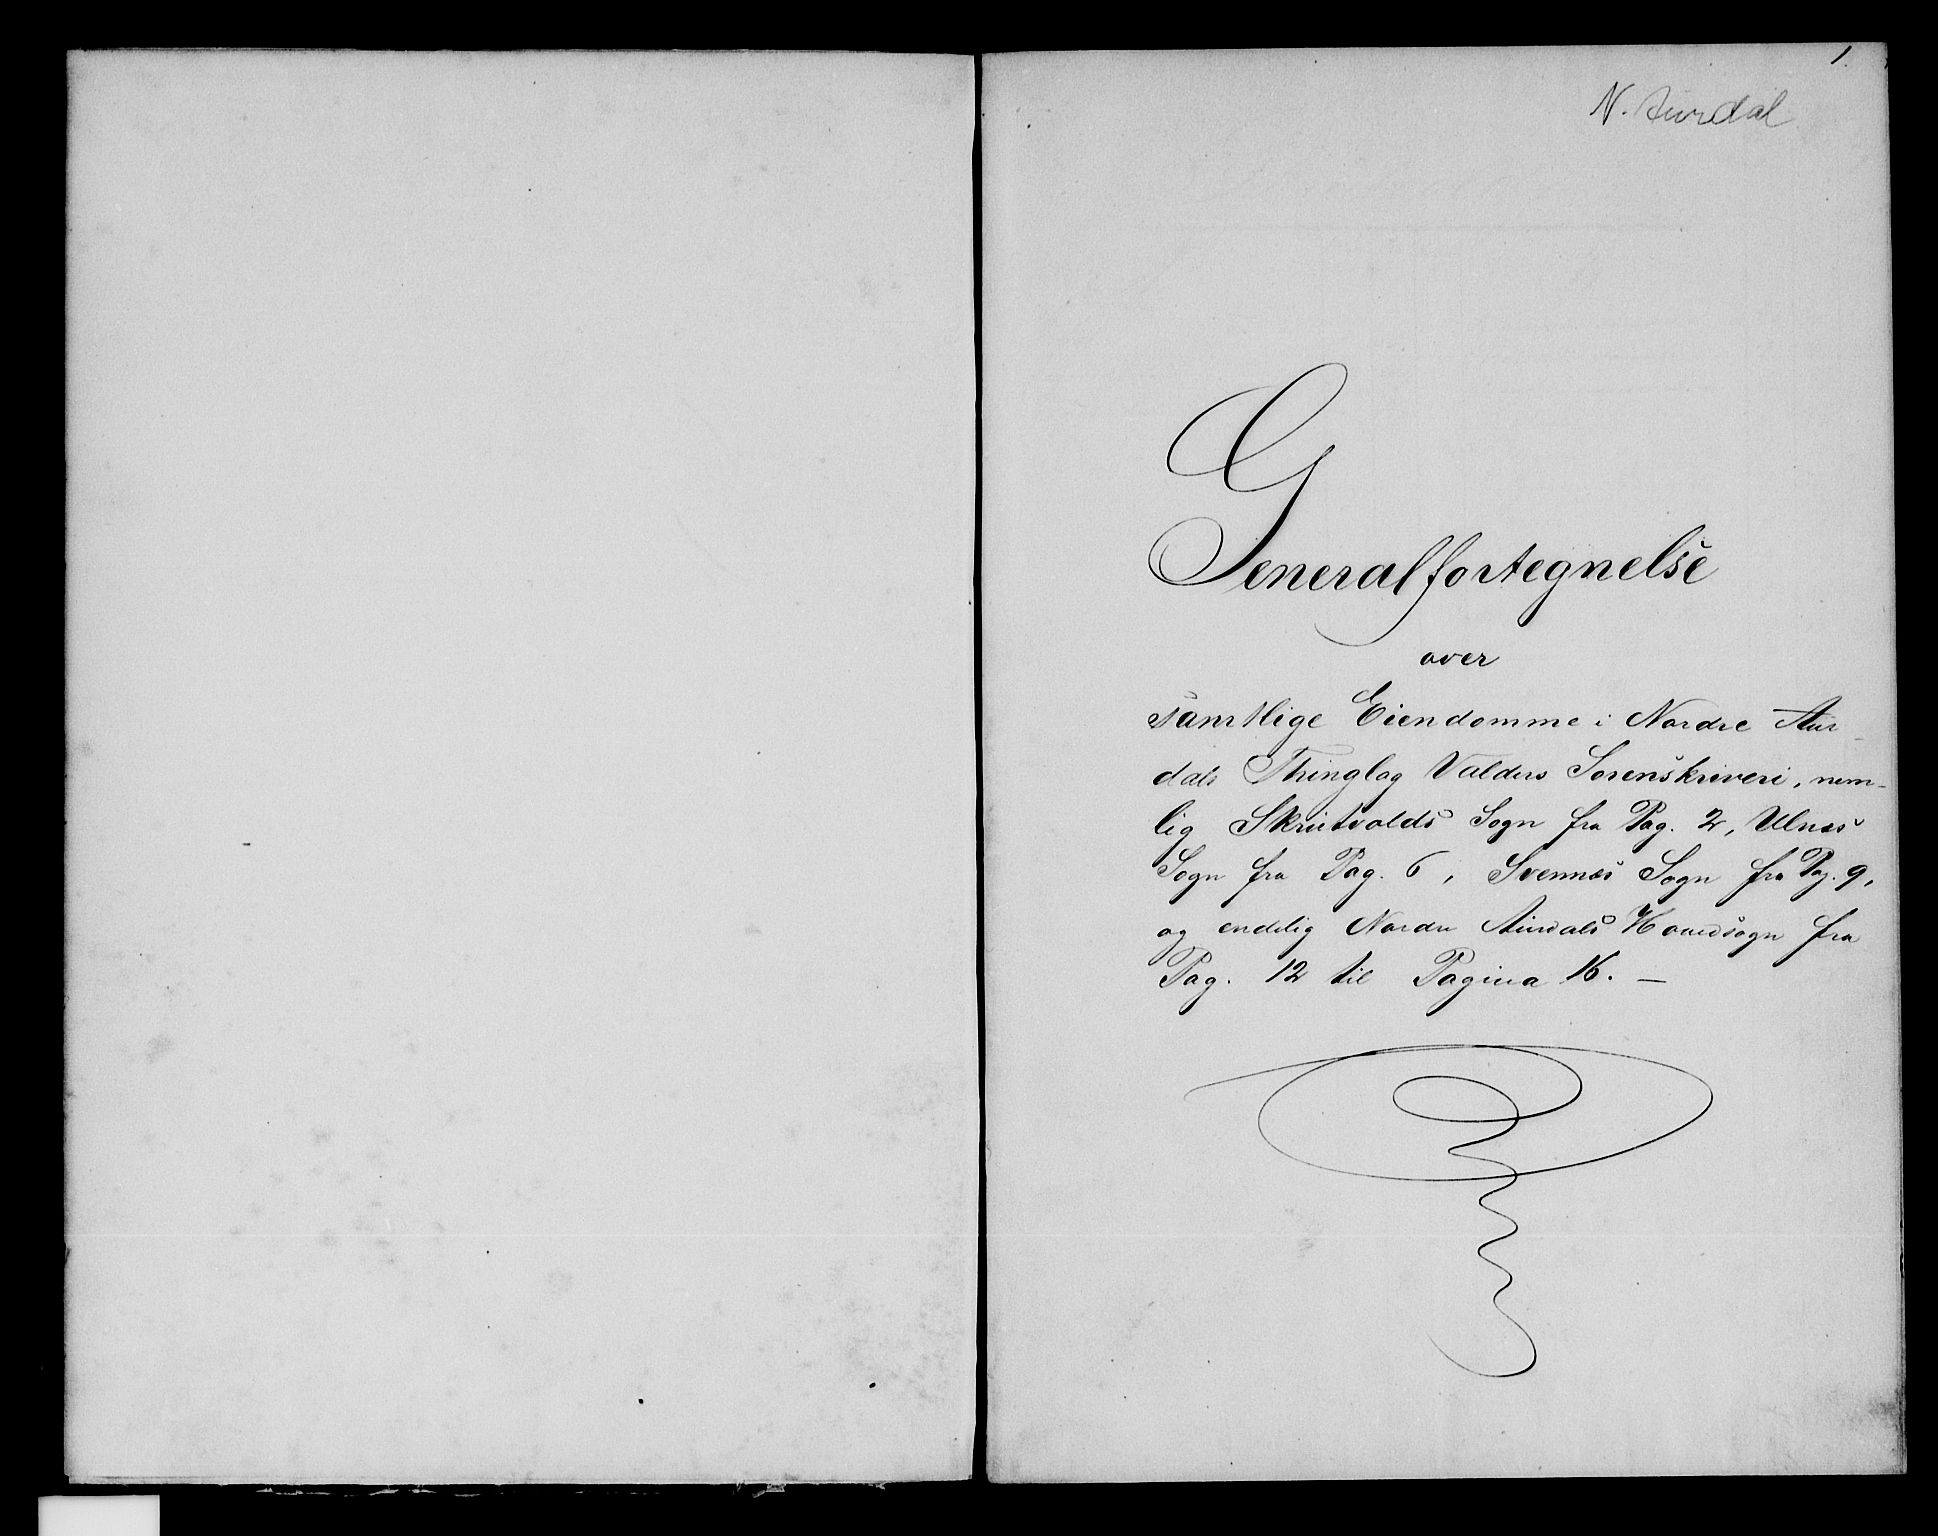 1.
N. Aurdal
Generalfortegnelse
over
samtlige Eiendomme i Nordre Aur-
dals Thinglag Valders Sorenskriveri, nem-
lig Skrutvolds Sogn fra Pag. 2, Ulnes
Sogn fra Pag. 6, Svennes Sogn fra Pag. 9,
og endelig Nordre Aurdals Hovedsogn fra
Pag. 12 til Pagina 16. —